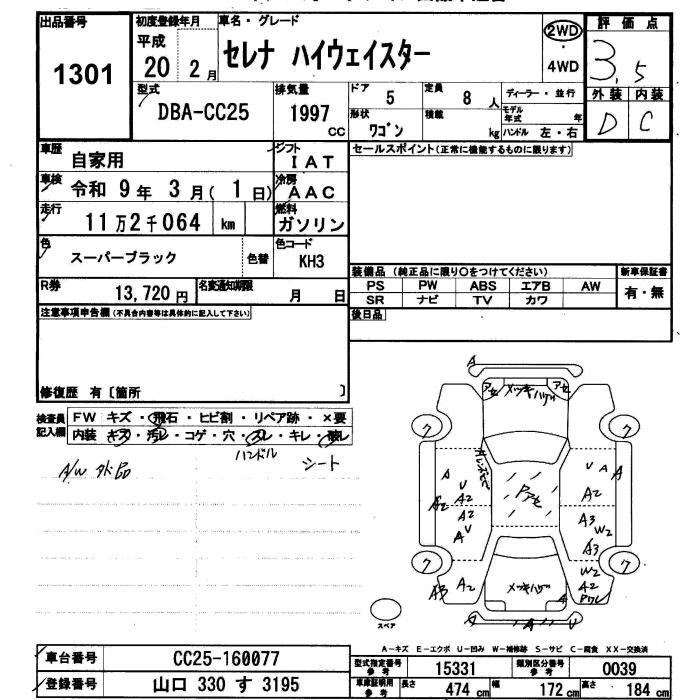 出品番号
1301
初度登録年月
平成
20 2月
車名・グレード
セレナ ハイウェイスター
2WD
4WD
評価点
3.5
外装 内装
D C
型式
DBA-CC25
排気量
1997
cc
ドア
5
定員
8 人
ディーラー・並行
形状
ワゴン
積載
kg
モデル年式 年
ハンドル 左・右
車歴
自家用
シフト
IAT
セールスポイント(正常に機能するものに限ります)
車検
令和 9年 3月( 1日)
冷房
AAC
走行
11万2千064 km
燃料
ガソリン
色
スーパーブラック
色替
色コード
KH3
装備品 (純正品に限り○をつけてください)
新車保証書
PS PW ABS エアB AW
SR ナビ TV カワ
有・無
R券
13,720円
名変通知期限
月 日
後日品
注意事項申告欄(不具合内容等は具体的に記入して下さい)
修復歴 有〔箇所 〕
検査員
記入欄
FW キズ・飛石・ヒビ割・リペア跡・×要
内装 キズ・汚レ・コゲ・穴・スレ・キレ・破レ
ハンドル
シート
A/W 外品
A
アセ メッキハゲ アセ
ク ク
A
U
A2
A2
A2
A
U
U A A
A2
A3
W2
A3
W2
A2
ク ク
A3 A2
メッキハゲ
A
A A U
スペア
A-キズ E-エクボ U-凹み W-補修跡 S-サビ C-腐食 XX-交換済
車台番号
CC25-160077
登録番号
山口 330 す 3195
型式指定番号
参考
15331
類別区分番号
参考
0039
車庫証明用
参考
長さ 474 cm 幅 172 cm 高さ 184 cm